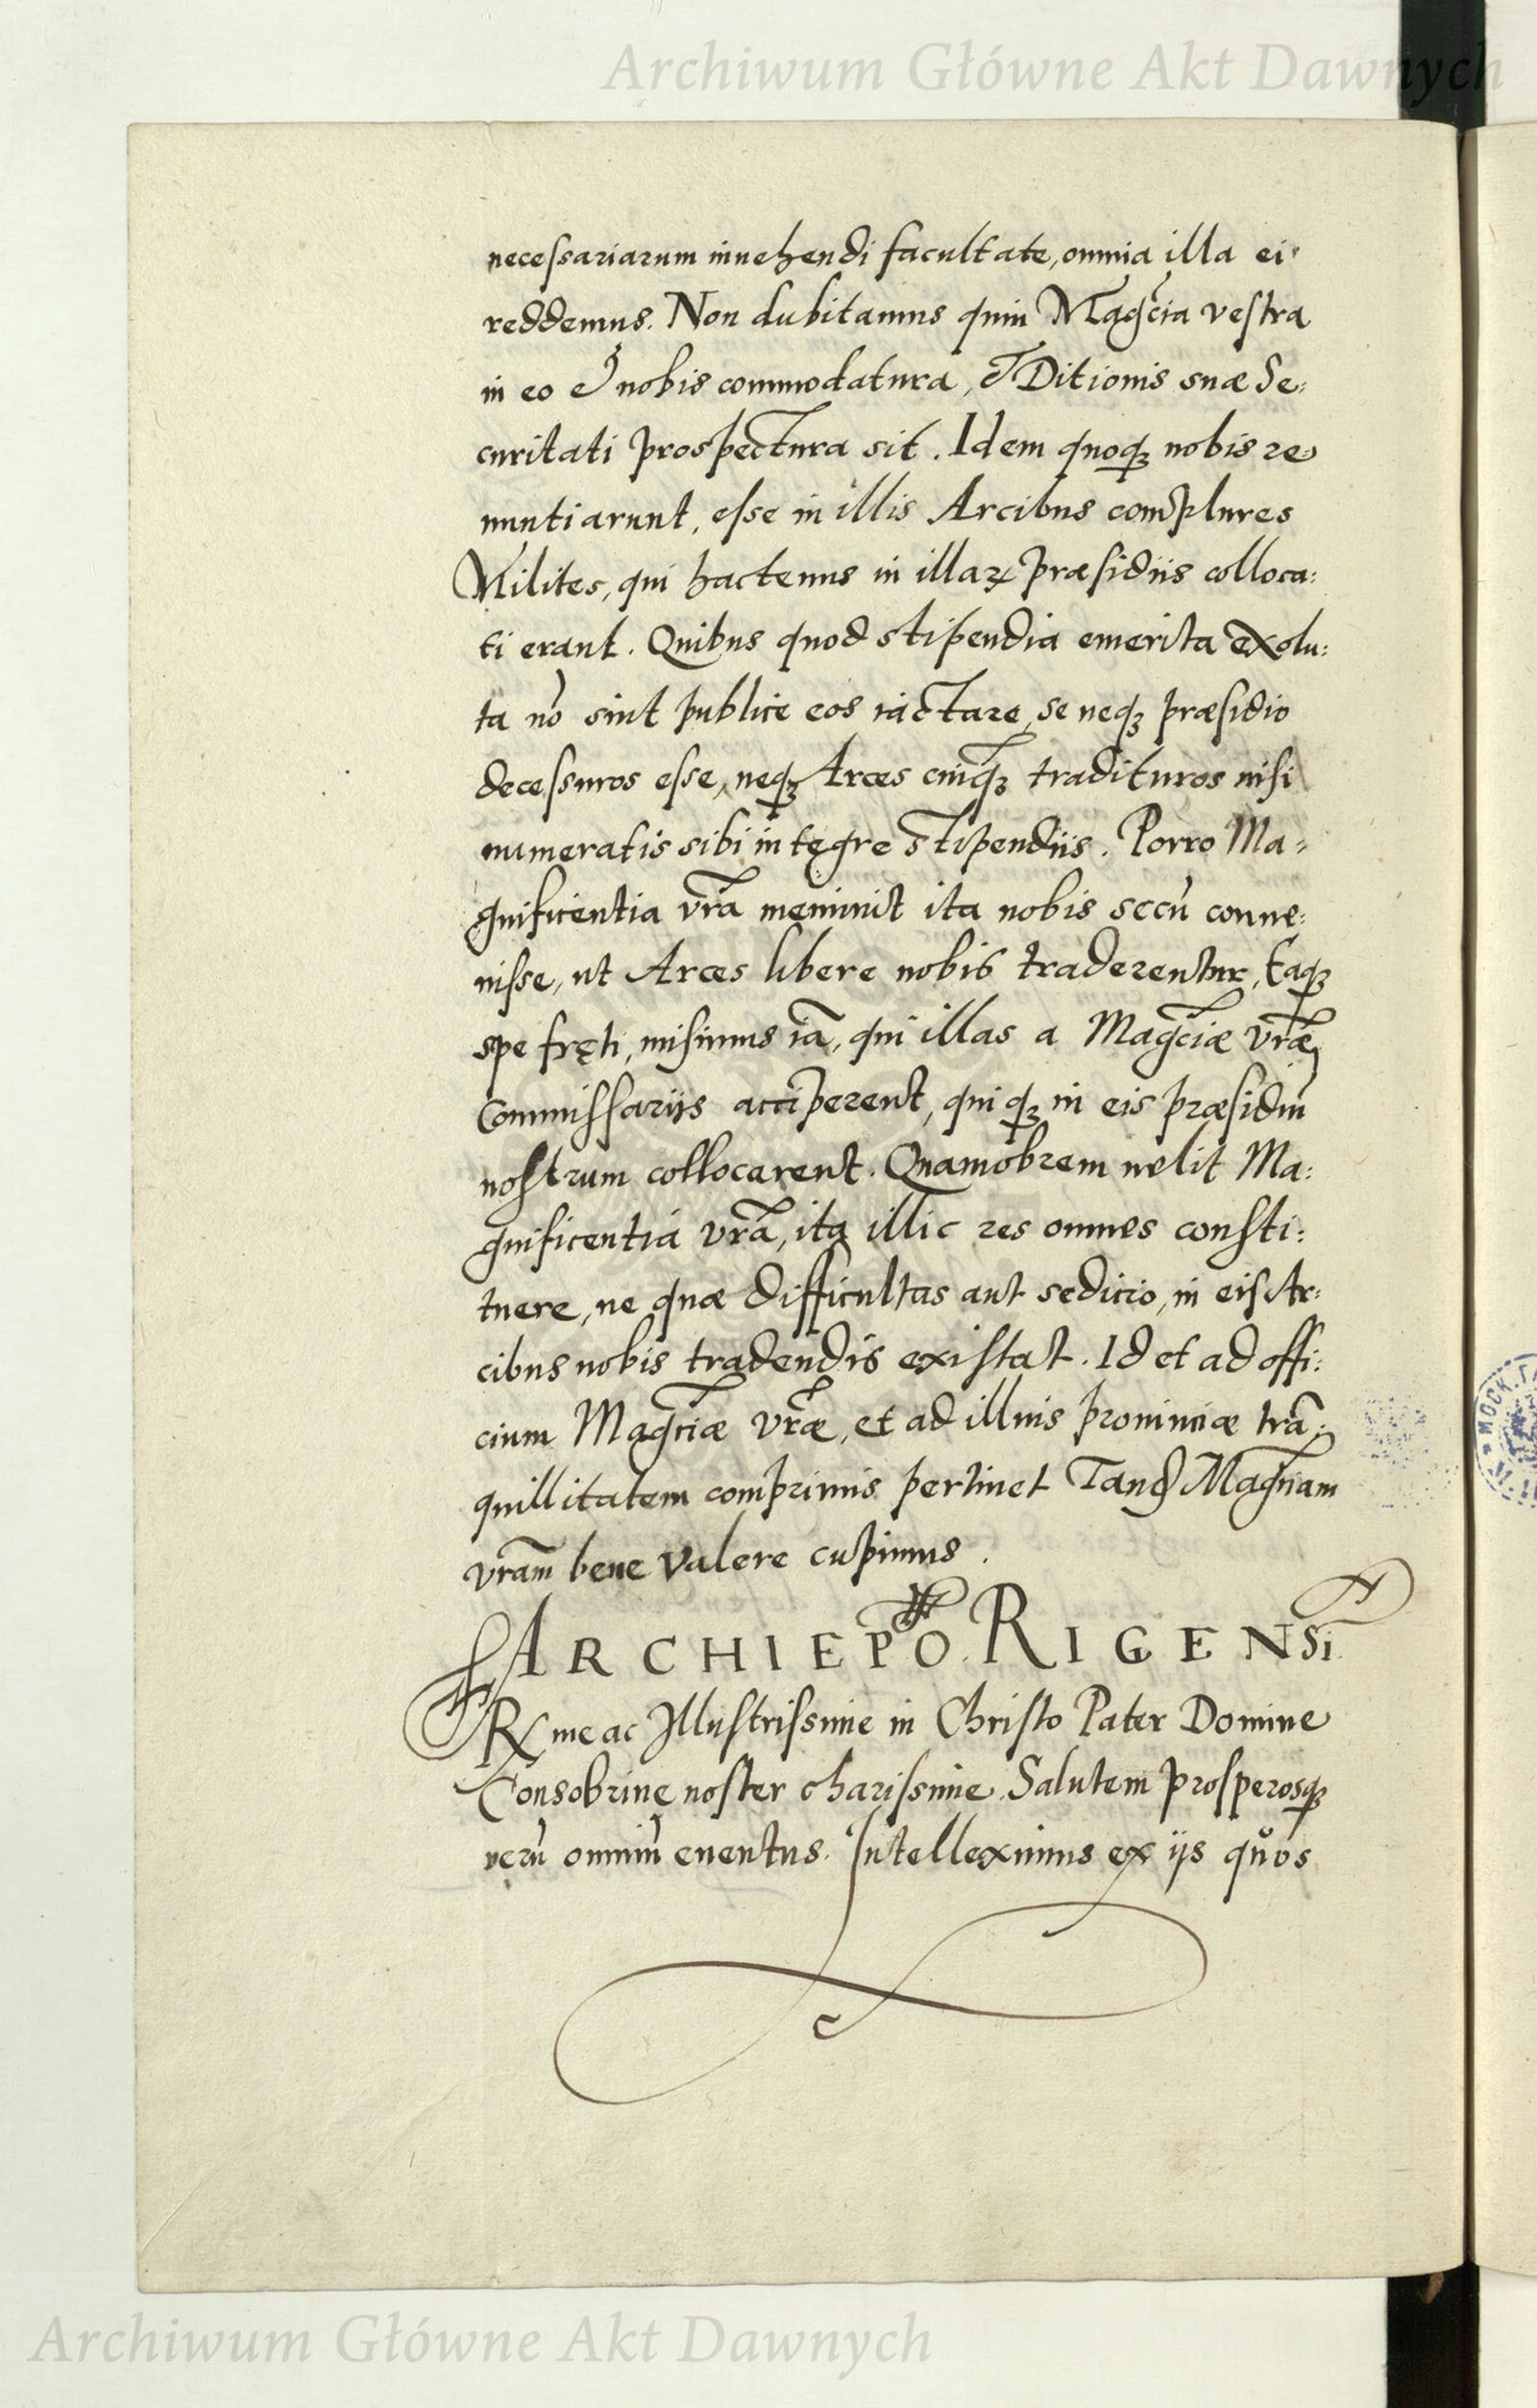 Archiwum Główne Akt Dawnych
necessariarum inuehendi facultate, omnia illa ei
reddemus. Non dubitamus quin Mag̃cia vestra
in eo & nobis commodatura, & Ditionis suæ Se:
curitati prospectura sit. Idem quoqꝫ nobis re
nuntiarunt, esse in illis Arcibus complures
Milites, qui hactenus in illaꝝ præsidiis colloca:
ti erant. Quibus quod stipendia emerita exolu:
ta nõ sint publice eos iactare, se neqꝫ præsidio
decessuros esse, neqꝫ Arces cuiqꝫ tradituros nisi
numeratis sibi integre stipendiis. Porro Ma:
gnificentia vrã meminit ita nobis secũ conue:
nisse, ut Arces libere nobis traderentur, Eaqꝫ
spe fręti, misimus iã, qui illas a Mag̃ciæ vr̃æ
Commissariis acciperent, quiqꝫ in eis præsidiũ
nostrum collocarent. Quamobrem uelit Ma:
gnificentia vrã, ita illic res omnes consti:
tuere, ne quæ difficultas aut sedicio, in eis Ar:
cibus nobis tradendis existat. Id et ad offi:
cium Mag̃ciæ vr̃æ, et ad illius prouinciæ trã:
quillitatem comprimis pertinet Mag̃niam
vrãm bene valere cupimus.
ARCHIEPO. RIGENSi.
Rme ac Illustrissime in Christo Pater Domine
Consobrine noster charissime. Salutem prosperosqꝫ
rerũ omniũ euentus. Intelleximus ex iis quos
Archiwum Główne Akt Dawnych